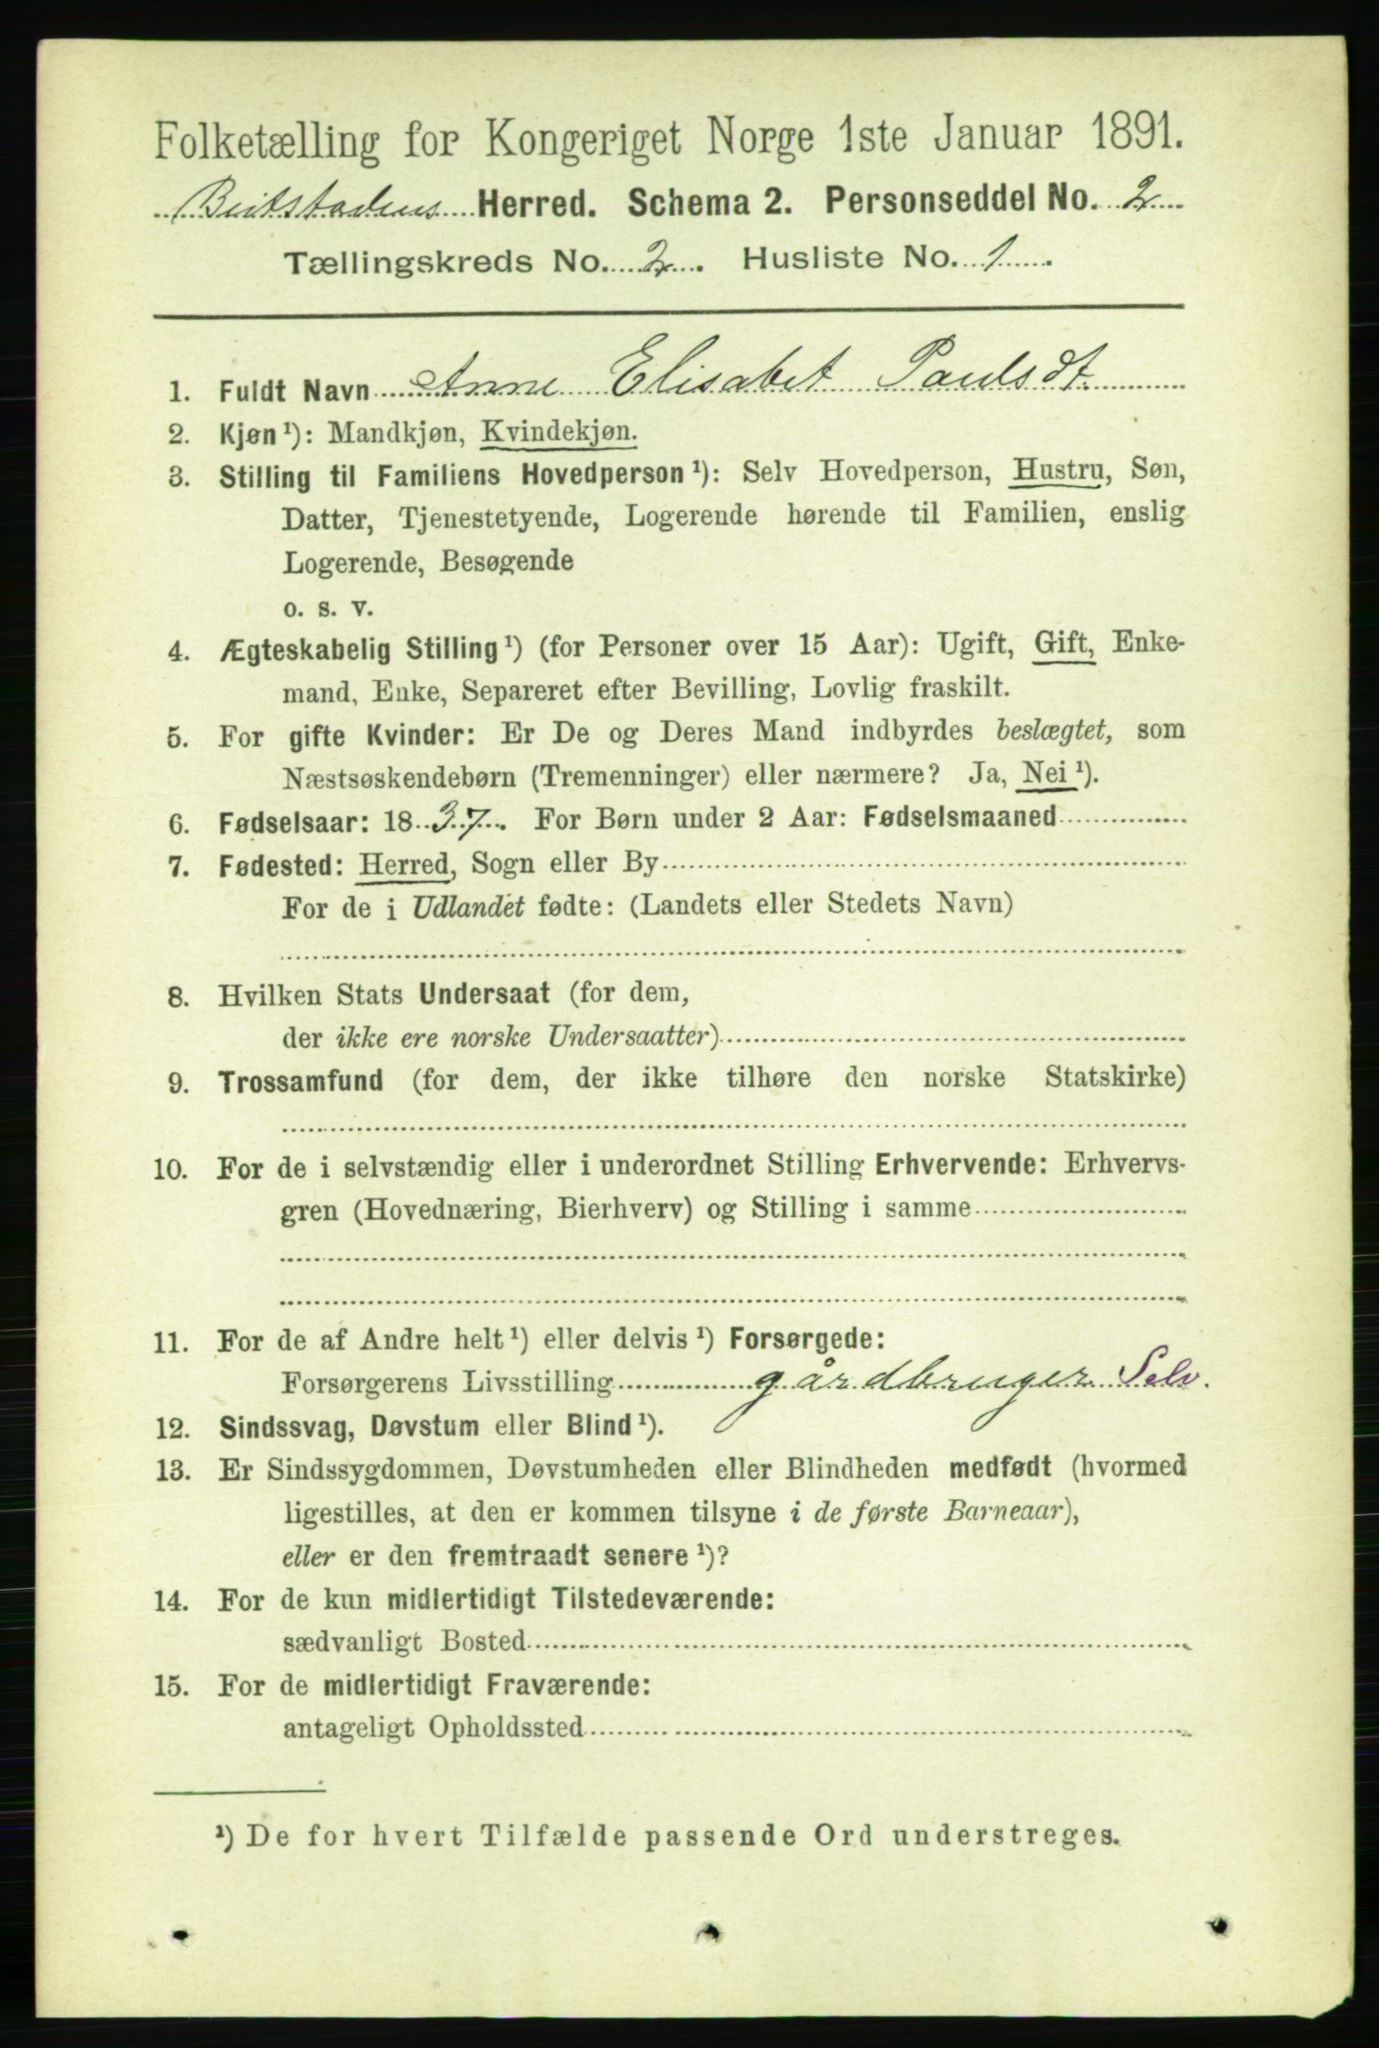 Folketælling for Kongeriget Norge 1ste Januar 1891.
Beitstadens Herred. Schema 2. Personseddel No. 2
Tællingskreds No. 2. Husliste No. 1.
1. Fuldt Navn Anne Elisabet Paulsdt
2. Kjøn¹): Mandkjøn, Kvindekjøn.
3. Stilling til Familiens Hovedperson¹): Selv Hovedperson, Hustru, Søn,
Datter, Tjenestetyende, Logerende hørende til Familien, enslig
Logerende, Besøgende
o. s. v.
4. Ægteskabelig Stilling¹) (for Personer over 15 Aar): Ugift, Gift, Enke-
mand, Enke, Separeret efter Bevilling, Lovlig fraskilt.
5. For gifte Kvinder: Er De og Deres Mand indbyrdes beslægtet, som
Næstsøskendebørn (Tremenninger) eller nærmere? Ja, Nei¹).
6. Fødselsaar: 1837. For Børn under 2 Aar: Fødselsmaaned
7. Fødested: Herred, Sogn eller By
For de i Udlandet fødte: (Landets eller Stedets Navn)
8. Hvilken Stats Undersaat (for dem,
der ikke ere norske Undersaatter)
9. Trossamfund (for dem, der ikke tilhøre den norske Statskirke)
10. For de i selvstændig eller i underordnet Stilling Erhvervende: Erhvervs-
gren (Hovednæring, Bierhverv) og Stilling i samme
11. For de af Andre helt¹) eller delvis¹) Forsørgede:
Forsørgerens Livsstilling gårdbruger Selv.
12. Sindssvag, Døvstum eller Blind¹).
13. Er Sindssygdommen, Døvstumheden eller Blindheden medfødt (hvormed
ligestilles, at den er kommen tilsyne i de første Barneaar),
eller er den fremtraadt senere¹)?
14. For de kun midlertidigt Tilstedeværende:
sædvanligt Bosted
15. For de midlertidigt Fraværende:
antageligt Opholdssted
¹) De for hvert Tilfælde passende Ord understreges.